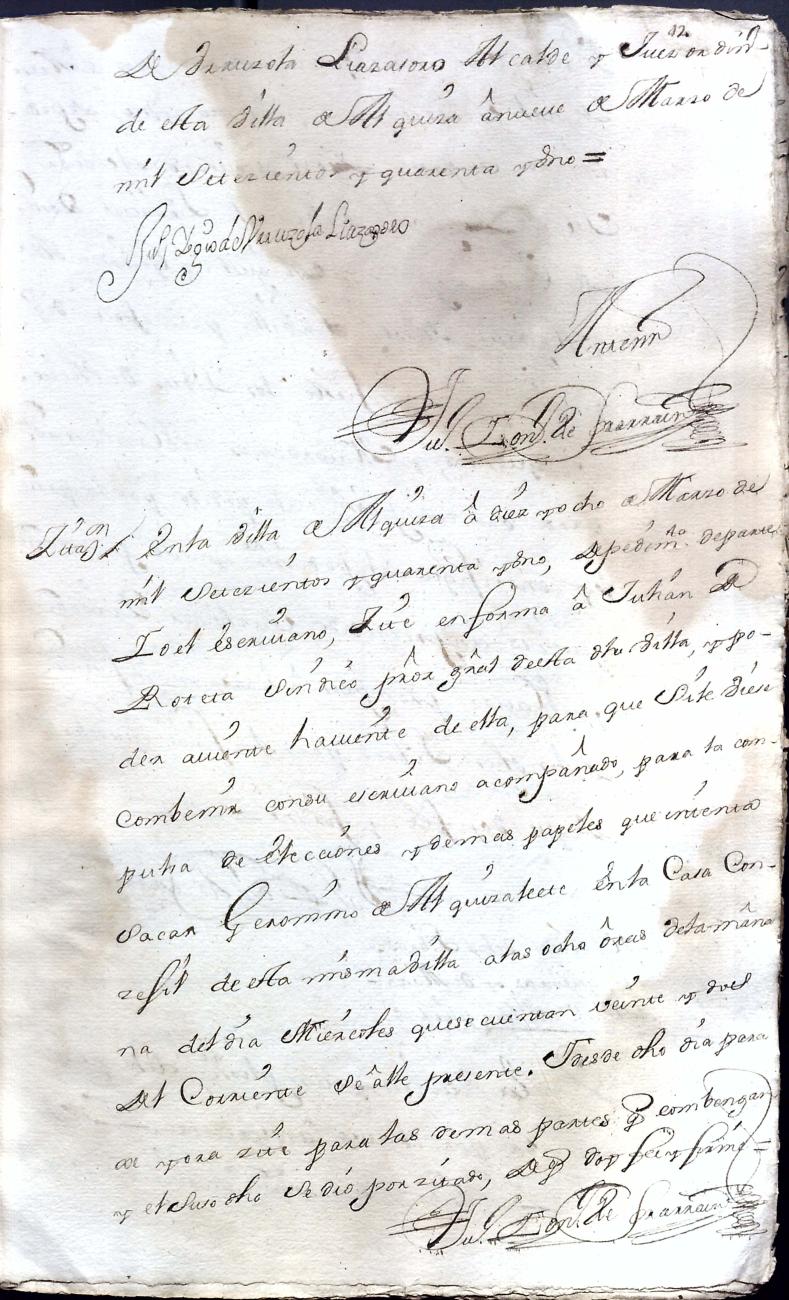 42
De Urruzola Lizarasoro Alcalde y Juez ordin
de esta Villa de Alquiza â nueve de Marzo de
mil Setezientos y quarenta y Uno =
de Urruzola Lizarasoro
Antemi
de Yrarrain
Zitaz.on / En la Villa de Alquiza â diez y ocho de Marzo de
mil Setezientos y quarenta y Uno, de pedim.to de parte
Yo el escrivano, Zite en forma â Julian de
Roteta Sindico pror gral de esta dha Villa, y po-
der aviente haviente de ella, para que Si le diese
Combenir con su escrivano acompañado, para la com-
pulsa de Elecciones y demas papeles que intenta
Sacar Geronimo de Alquizalete en la Casa Con-
zesil de esta misma Villa a las ocho ôras de la maña
na del dia Miercoles que se cuentan veinte y dos
del Corriente Se alle presente. Y desde dho dia para
de y ora zite para las demas partes q combengan
y el Suso dho Se dio por zitado, de q doy fee y firme =
de Yrarrain